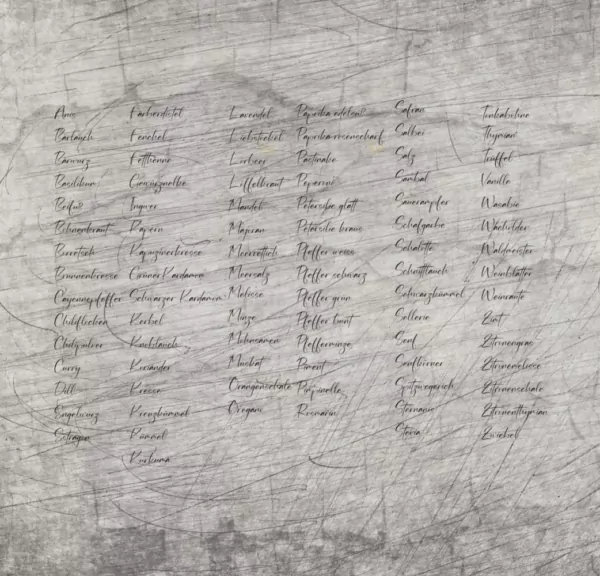 Anis
Bärlauch
Bärwurz
Basilikum
Beifuß
Bohnenkraut
Borretsch
Brunnenkresse
Cayennepfeffer
Chiliflocken
Chilipulver
Curry
Dill
Engelwurz
Estragon
Färberdistel
Fenchel
Fetthenne
Gewürznelke
Ingwer
Kapern
Kapuzinerkresse
Grüner Kardamom
Schwarzer Kardamom
Kerbel
Knoblauch
Koriander
Kresse
Kreuzkümmel
Kümmel
Kurkuma
Lavendel
Liebstöckel
Lorbeer
Löffelkraut
Mandel
Majoran
Meerrettich
Meersalz
Melisse
Minze
Mohnsamen
Muskat
Orangenschale
Oregano
Paprika edelsüß
Paprika rosenscharf
Pastinake
Peperoni
Petersilie glatt
Petersilie kraus
Pfeffer weiss
Pfeffer schwarz
Pfeffer grün
Pfeffer bunt
Pfefferminze
Piment
Pimpinelle
Rosmarin
Safran
Salbei
Salz
Sambal
Sauerampfer
Schafgarbe
Schalotte
Schnittlauch
Schwarzkümmel
Sellerie
Senf
Senfkörner
Spitzwegerich
Sternanis
Stevia
Tonkabohne
Thymian
Trüffel
Vanille
Wasabie
Wacholder
Waldmeister
Weinblätter
Weinraute
Zimt
Zitronengras
Zitronenmelisse
Zitronenschale
Zitronenthymian
Zwiebel